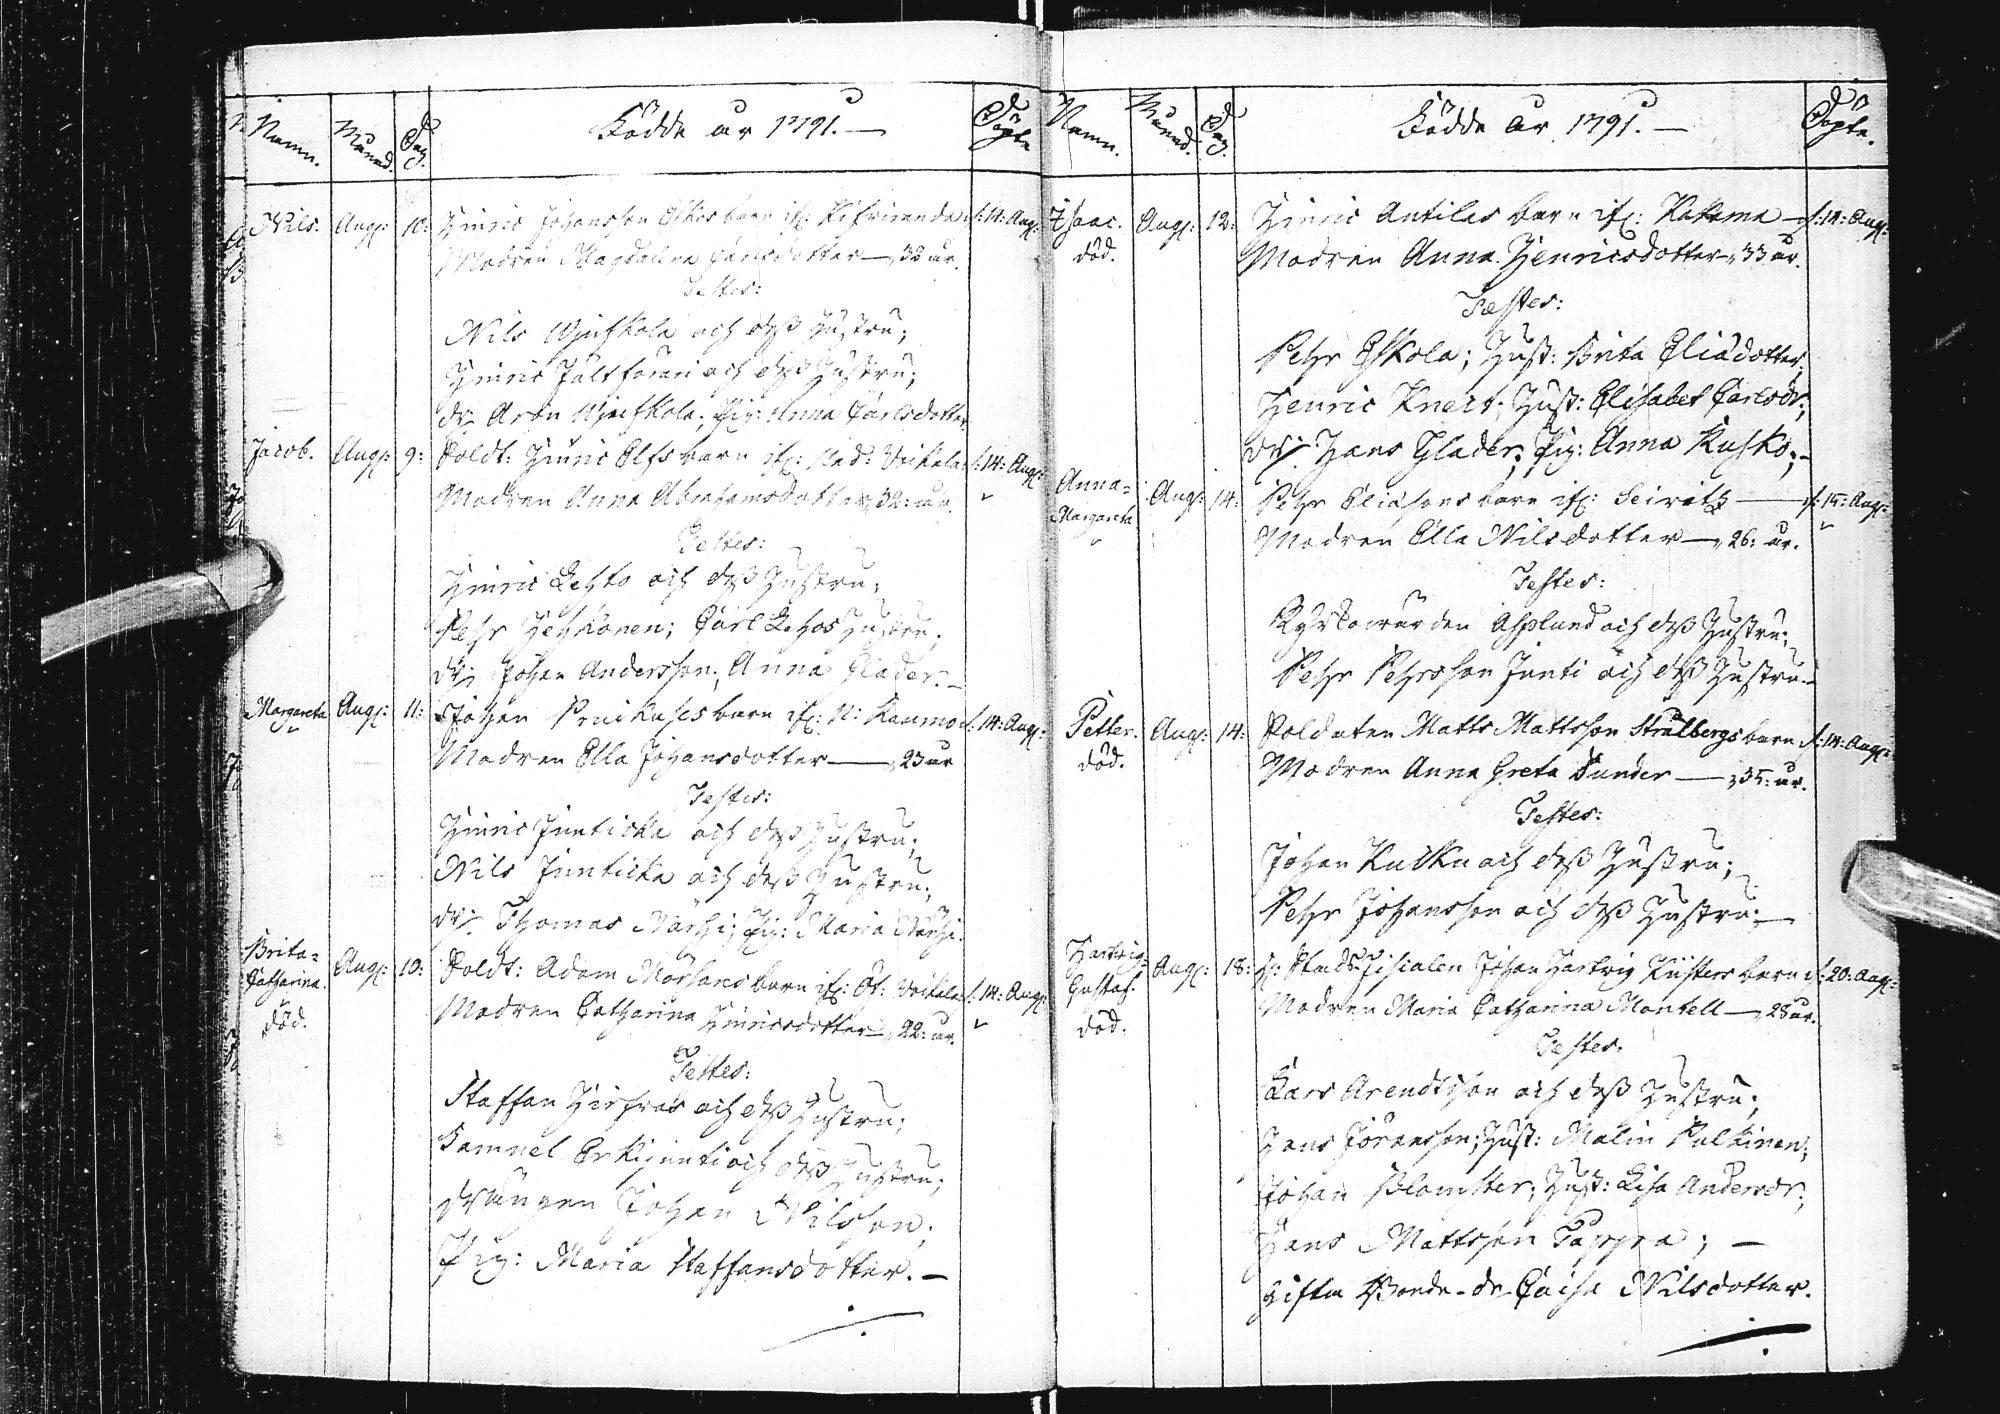 Namn.
Månad.
Dag.
Födde år 1791. —
Döpte
Nils.
Aug:
10:
Hinric Johansson barn if:
d: 14: Aug:
Modren Magdalena Carlsdotter — 32 år.
Testes:
Nils och dess Hustru;
Hinric och dess Hustru;
dr: Aron Pig: Anna Carlsdotter
Jacob.
Aug:
9:
Soldt: Hinric Elfs barn if: Ned: Voikala
d: 14: Aug:
Modren Anna Abrahamsdotter, 32: år.
Testes:
Hinric Lehto och dess Hustru;
Pehr Heikonen; Carl Lehos Hustru;
dr: Johan Andersson; Anna Glader. —
Margareta
Aug:
11:
Johan barn if: N: Kaumo
d: 14: Aug:
Modren Ella Johansdotter — 23 år
Testes:
Hinric Juntikka och dess Hustru;
Nils Juntikka och dess Hustru;
dr: Thomas Närhi; Pig: Maria Närhi.
Brita=
Catharina.
död.
Aug:
10:
Soldt: Adam barn if: Öf: Voikala
d: 14: Aug:
Modren Catharina Hinricsdotter — 22: år.
Testes:
Staffan och dess Hustru;
Samuel Erkijunti och dess Hustru;
Drängen Johan Nilsson;
Pig: Maria Staffansdotter. —
Namn.
Månad.
Dag.
Födde år 1791. —
Döpte.
Isaac.
död.
Aug:
12:
Hinric Antilas barn if: Kakama —
d: 14: Aug:
Modren Anna Henricsdotter — 33 år.
Testes:
Pehr Eskola; Hust: Brita Eliædotter;
Henric Knert; Hust: Elisabet Carlsdr;
dr: Hans Glader; Pig: Anna Kusko; —
Anna=
Margareta
Aug:
14:
Pehr Eliæsons barn if: Seiritz —
d: 15: Aug:
Modren Ella Nilsdotter — 26: år.
Testes:
Kyrkowärden Asplund och dess Hustru;
Pehr Pehrsson Junti och dess Hustru —
Petter.
död.
Aug:
14:
Soldaten Matts Mattsson Strålbergs barn
d: 14: Aug:
Modren Anna Greta Sunder — 35: år.
Testes:
Johan Kuikka och dess Hustru;
Pehr Johansson och dess Hustru; —
Hartvig
Gustaf.
död.
Aug:
18:
H: Stads Fiscalen Johan Hartvig Küsters barn
d: 20: Aug:
Modren Maria Catharina Montell — 28 år.
Testes:
Lars Arendtson och dess Hustru;
Hans Göransson; Hust: Malin Pulkinen;
Johan Blomster; Hust: Lisa Andersdr;
Hans Mattsson Pappra; —
Giftm Bonde-dr Caisa Nilsdotter.